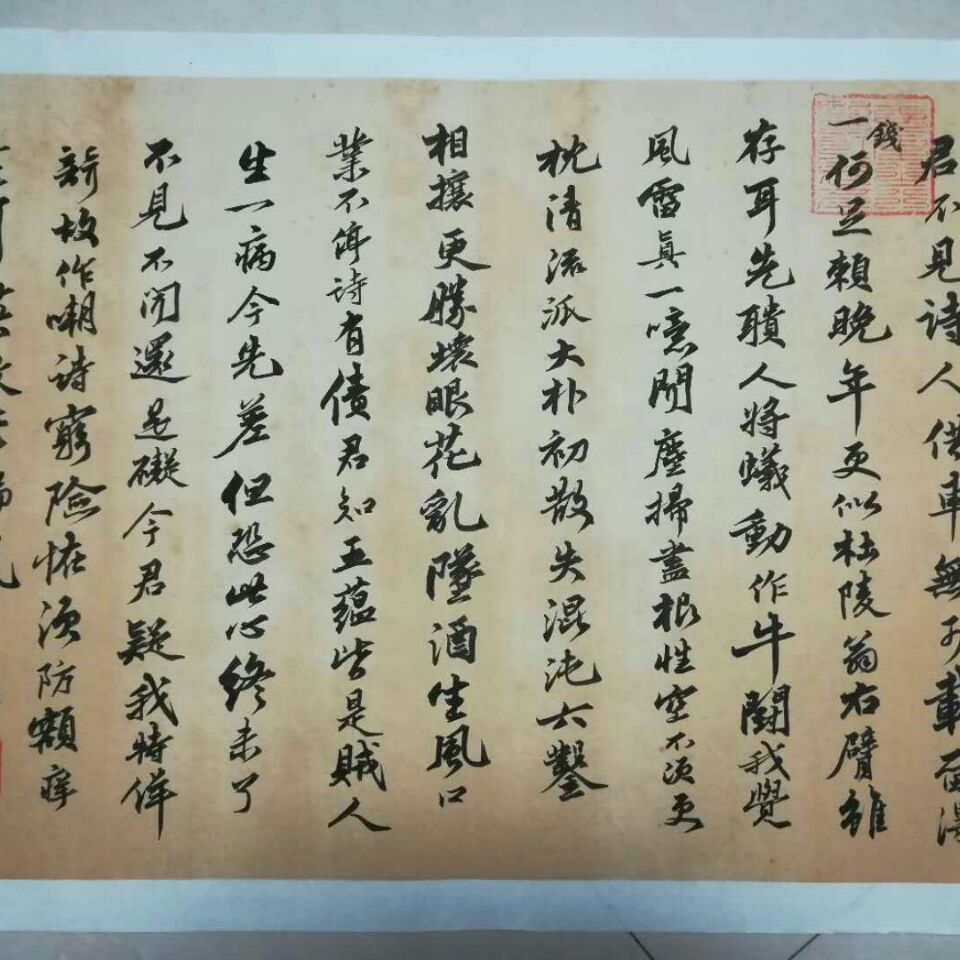 君不見詩人借車無可載留得
一錢何足賴晚年更似杜陵翁右臂雖
存耳先聵人將蟻動作牛鬪我覺
風雷真一噫聞塵掃盡根性空不須更
枕清流派大朴初散失混沌六鑿
相攘更勝壞眼花亂墜酒生風口
業不停詩有債君知五蘊皆是賊人
生一病今先差但恐此心終未了
不見不聞還是礙今君疑我特佯
聾故作嘲詩窮險恠須防額痒